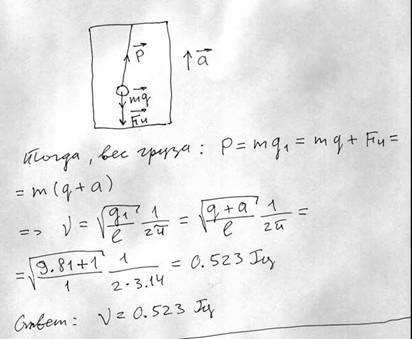 P
a
mg
Fи
Тогда, вес груза: P = mg₁ = mg + Fи =
= m(g + a)
=> ν = √(g₁/l) 1/2π = √((g + a)/l) 1/2π =
= √((9.81 + 1)/1) 1/(2·3.14) = 0.523 Гц
Ответ: ν = 0.523 Гц